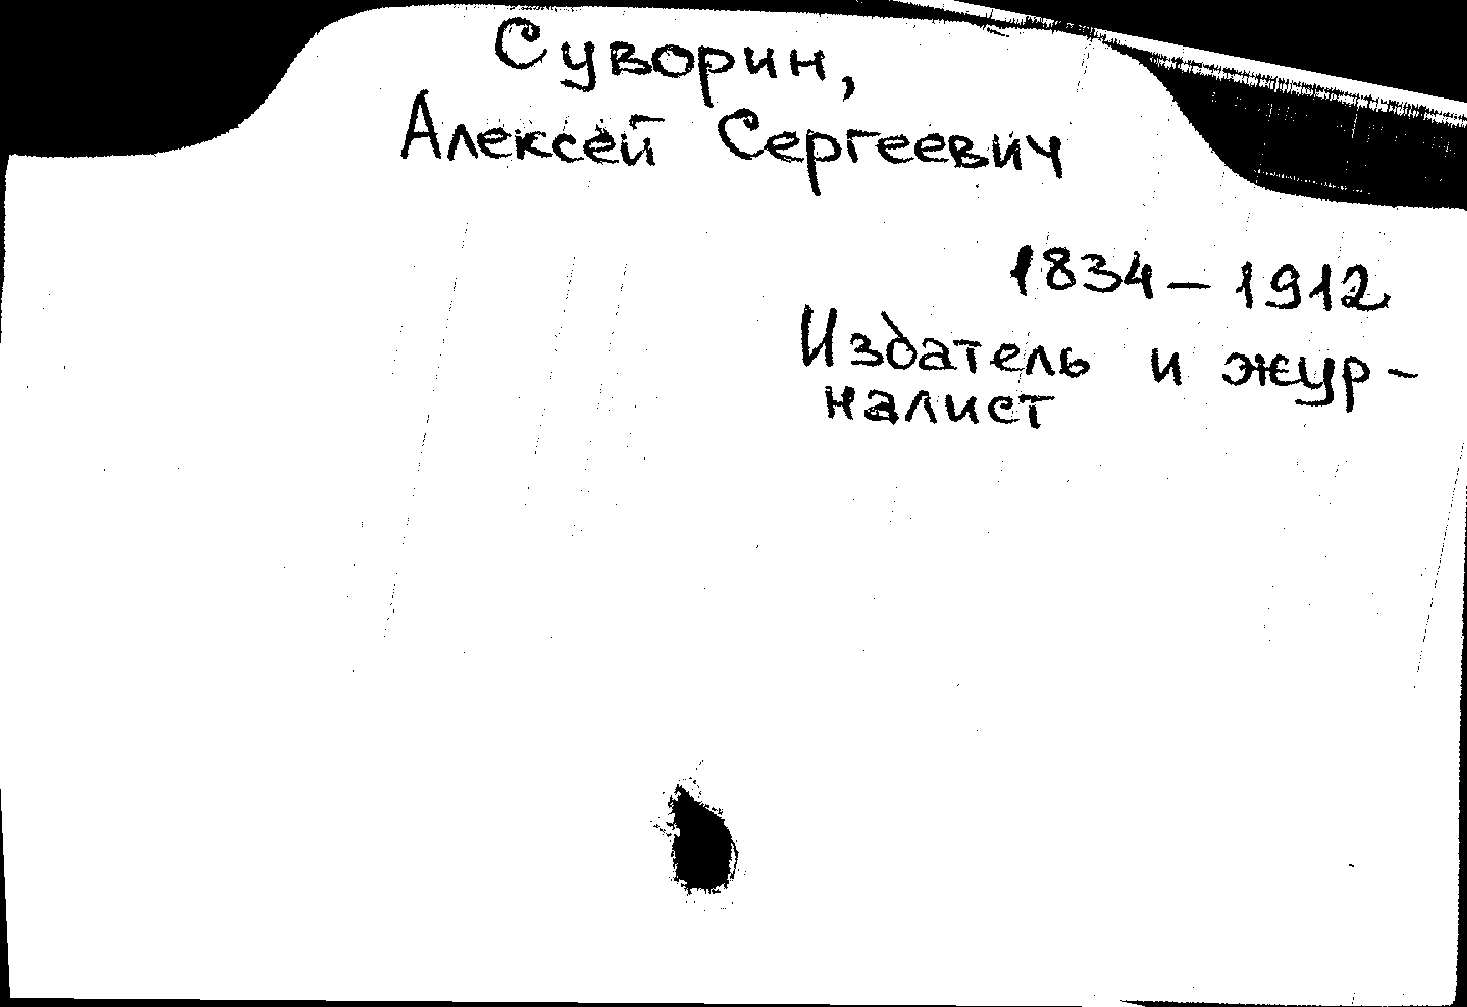 Суворин,
Алексей Сергеевич
1834–1912
Издатель и жур-
налист